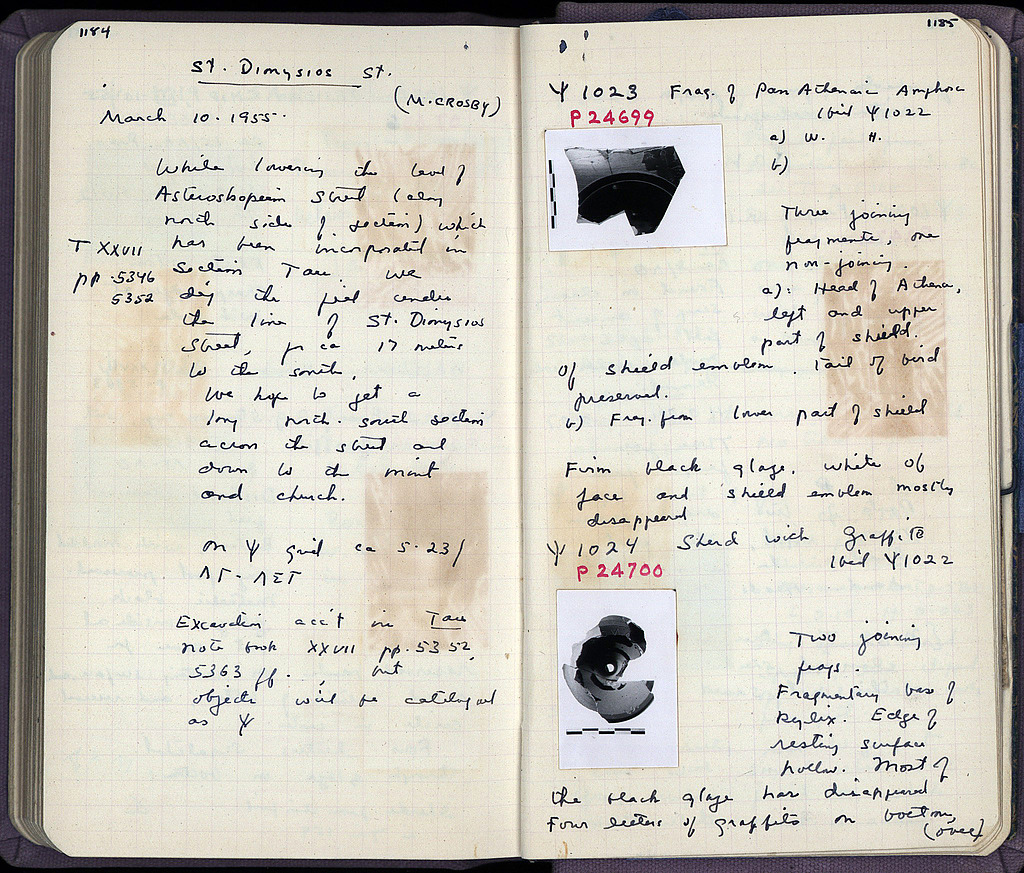 1184
St. Dionysios St.
(M. CROSBY)
March 10. 1955.
While lowering the level of
Asteroskopeion Street (along
north side of section) which
T XXVII
has been incorporated in
pp. 5346
5352
Section Tau, we
dig the fill under
the line of St. Dionysios
Street, for ca 17 meters
to the south.
We hope to get a
long north-south section
across the street and
down to the mint
and church.
On Ψ grid ca 5-23/
ΛΓ-ΛΣΤ
Excavation acc't in Tau
note book XXVII pp. 5352,
5363 ff., but
objects will be catalogued
as Ψ
1185
Ψ 1023 Frag. of PanAthenaic Amphora
P 24699
Ibid Ψ1022
a) W. H.
b)
Three joining
fragments, one
non-joining.
a): Head of Athena,
left and upper
part of shield.
Of shield emblem, tail of bird
preserved.
b) Frag. from lower part of shield
Firm black glaze. White of
face and shield emblem mostly
disappeared
Ψ 1024 Sherd with Graffito
P 24700
Ibid Ψ1022
Two joining
frags.
Fragmentary base of
kylix. Edge of
resting surface
hollow. Most of
the black glaze has disappeared
Four letters of graffito on bottom,
(over)